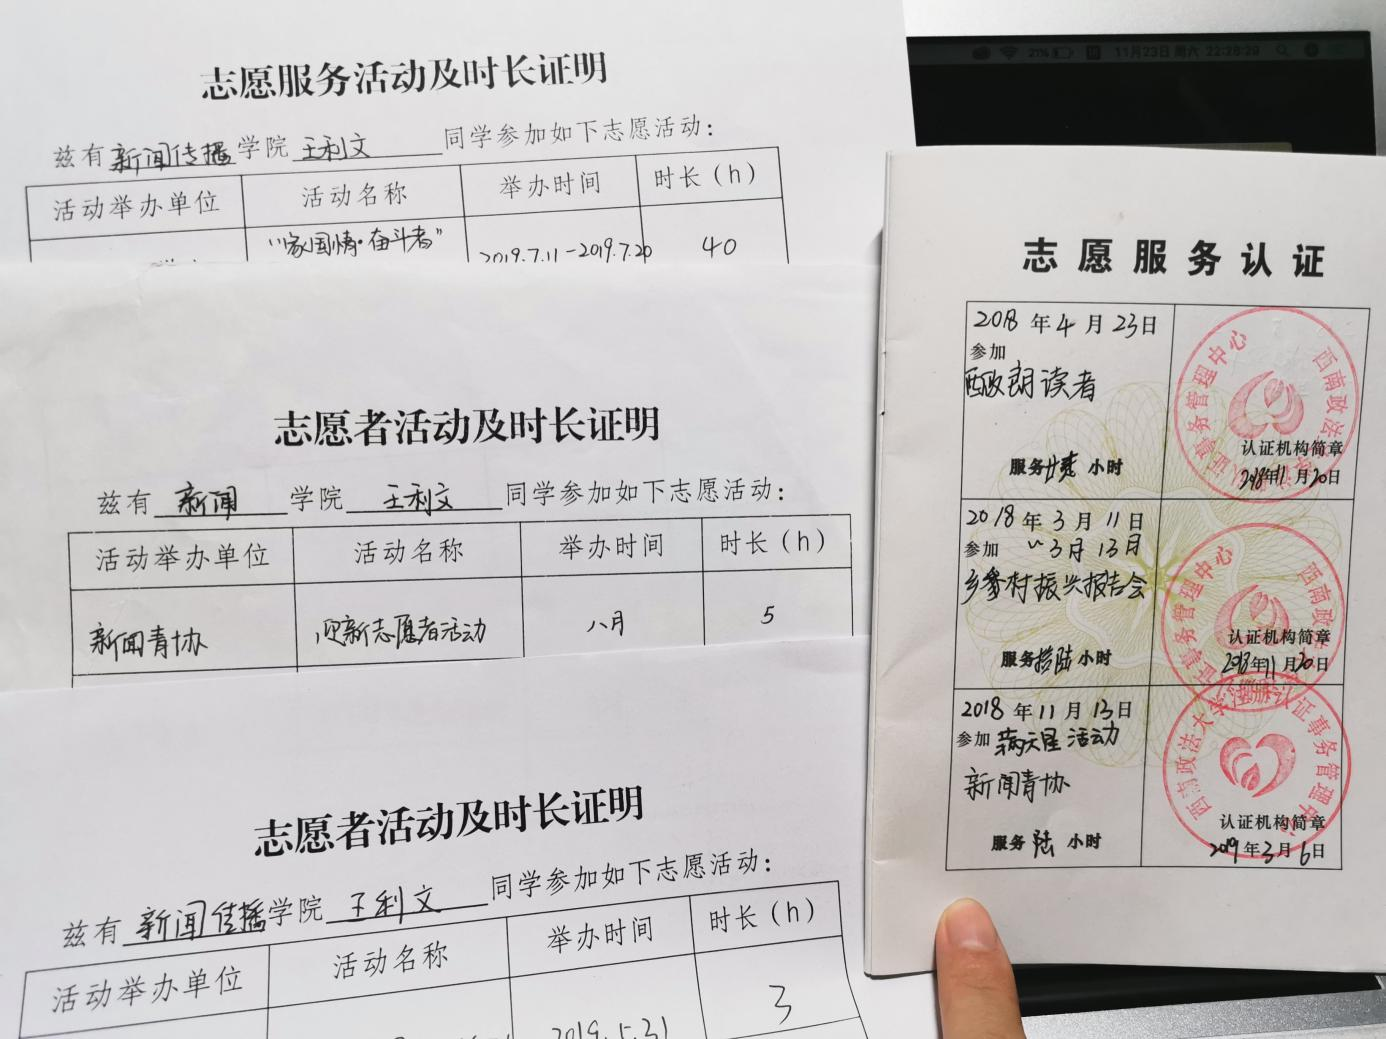 志愿服务活动及时长证明
兹有新闻传播学院王利文同学参加如下志愿活动：
活动举办单位 活动名称 举办时间 时长（h）
"家国情·奋斗者" 2019.7.11-2019.7.20 40
志愿者活动及时长证明
兹有新闻学院王利文同学参加如下志愿活动：
活动举办单位 活动名称 举办时间 时长（h）
新闻青协 迎新志愿者活动 八月 5
志愿者活动及时长证明
兹有新闻传播学院王利文同学参加如下志愿活动：
活动举办单位 活动名称 举办时间 时长（h）
2019.5.31 3
21% 11月23日 周六 22:28:29
志愿服务认证
2018年4月23日
参加
西政朗读者
服务 小时
西南政法 事务管理中心
认证机构简章
2018年11月20日
2018年3月11日
参加 ~3月13日
乡村振兴报告会
服务拾陆小时
西南政 事务管理中心
认证机构简章
2018年11月20日
2018年11月13日
参加 满天星活动
新闻青协
服务陆小时
西南政法大学注册认证事务管理中心
认证机构简章
2019年3月6日